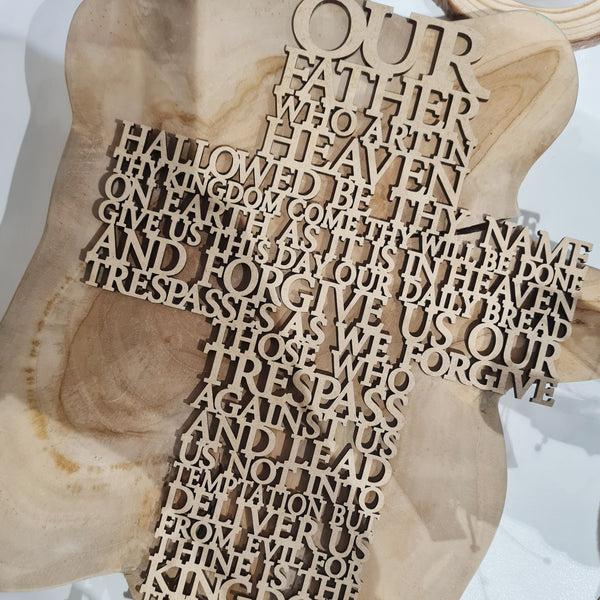 OUR
FATHER
WHO ART IN
HEAVEN
HALLOWED BE THY NAME
THY KINGDOM COME THY WILL BE DONE
ON EARTH AS IT IS IN HEAVEN
GIVE US THIS DAY OUR DAILY BREAD
AND FORGIVE US OUR
TRESPASSES AS WE FORGIVE
THOSE WHO
TRESPASS
AGAINST US
AND LEAD
US NOT INTO
TEMPTATION BUT
DELIVER US
FROM EVIL FOR
THINE IS THE
KINGD